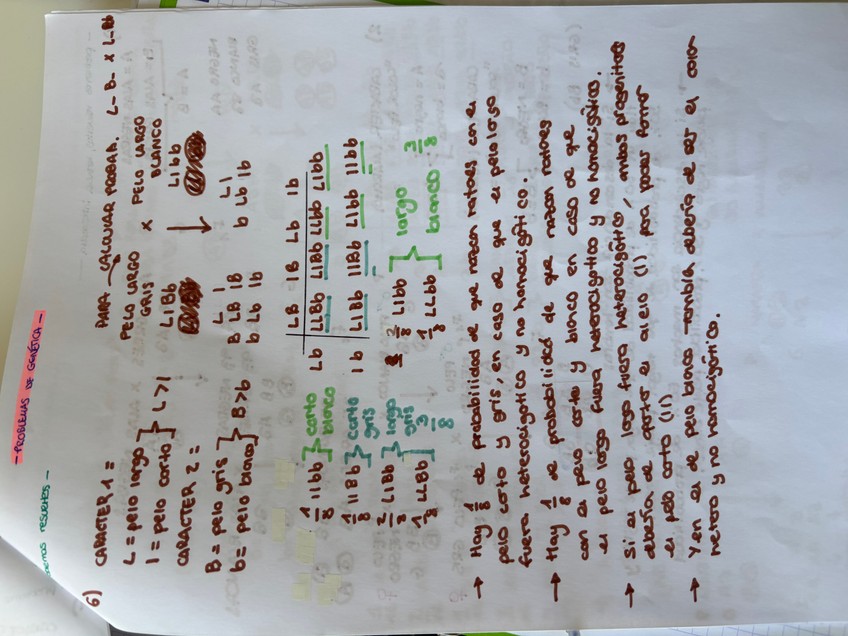 - PROBLEMAS DE GENÉTICA -
resueltos -
6) CARACTER 1 =
L = pelo largo
l = pelo corto } L > l
CARACTER 2 =
B = pelo gris
b = pelo blanco } B > b
PARA CALCULAR PROBAB. L- B- x L- Bb
PELO LARGO GRIS x PELO LARGO BLANCO
LlBb Llbb
B L l
b LB lB
b Lb lb
L l
b Lb lb
LB lB Lb lb
Lb LLBb LlBb LLbb Llbb
lb LlBb llBb Llbb llbb
1/8 llbb } corto blanco
1/8 llBb } corto gris
2/8 LlBb
1/8 LLBb } largo gris 3/8
2/8 Llbb
1/8 LLbb } largo blanco 3/8
→ Hay 1/8 de probabilidad de que nazcan ratones con el
pelo corto y gris, en caso de que el pelo largo
fuera heterocigotico y no homocigótico.
→ Hay 1/8 de probabilidad de que nazcan ratones
con el pelo corto y blanco en caso de que
el pelo largo fuera heterocigótico y no homocigótico.
→ Si el pelo largo fuera heterocigótico, ambos progenitores
debería de aportar el alelo (l) para poder formar
el pelo corto (ll)
→ Y en el de pelo blanco también debería de ser el color
hetero y no homocigótico.